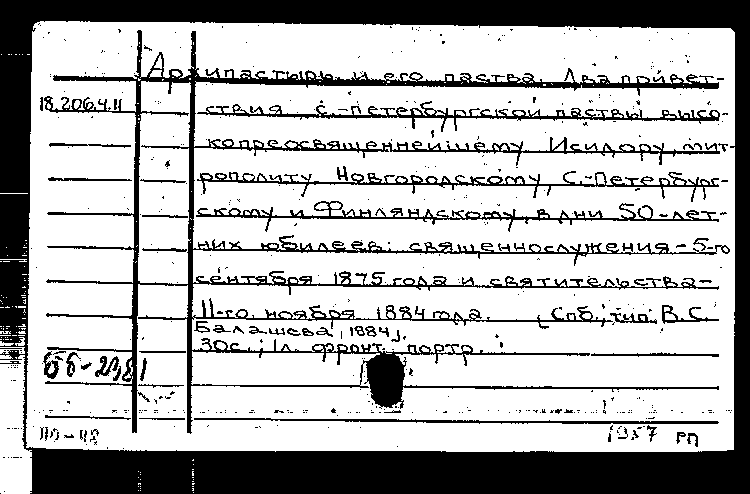 Архипастырь и его паства. Два привет-
18.206.4.11 ствия С.-Петербургской паствы высо-
копреосвященнейшему Исидору, мит-
рополиту Новгородскому, С.-Петербург-
скому и Финляндскому, в дни 50-лет-
них юбилеев: священнослужения - 5-го
сентября 1875 года и святительства -
11-го ноября 1884 года. [Спб., тип. В.С.
Балашева, 1884].
30с.; 1л. фронт. портр.
1957 РП